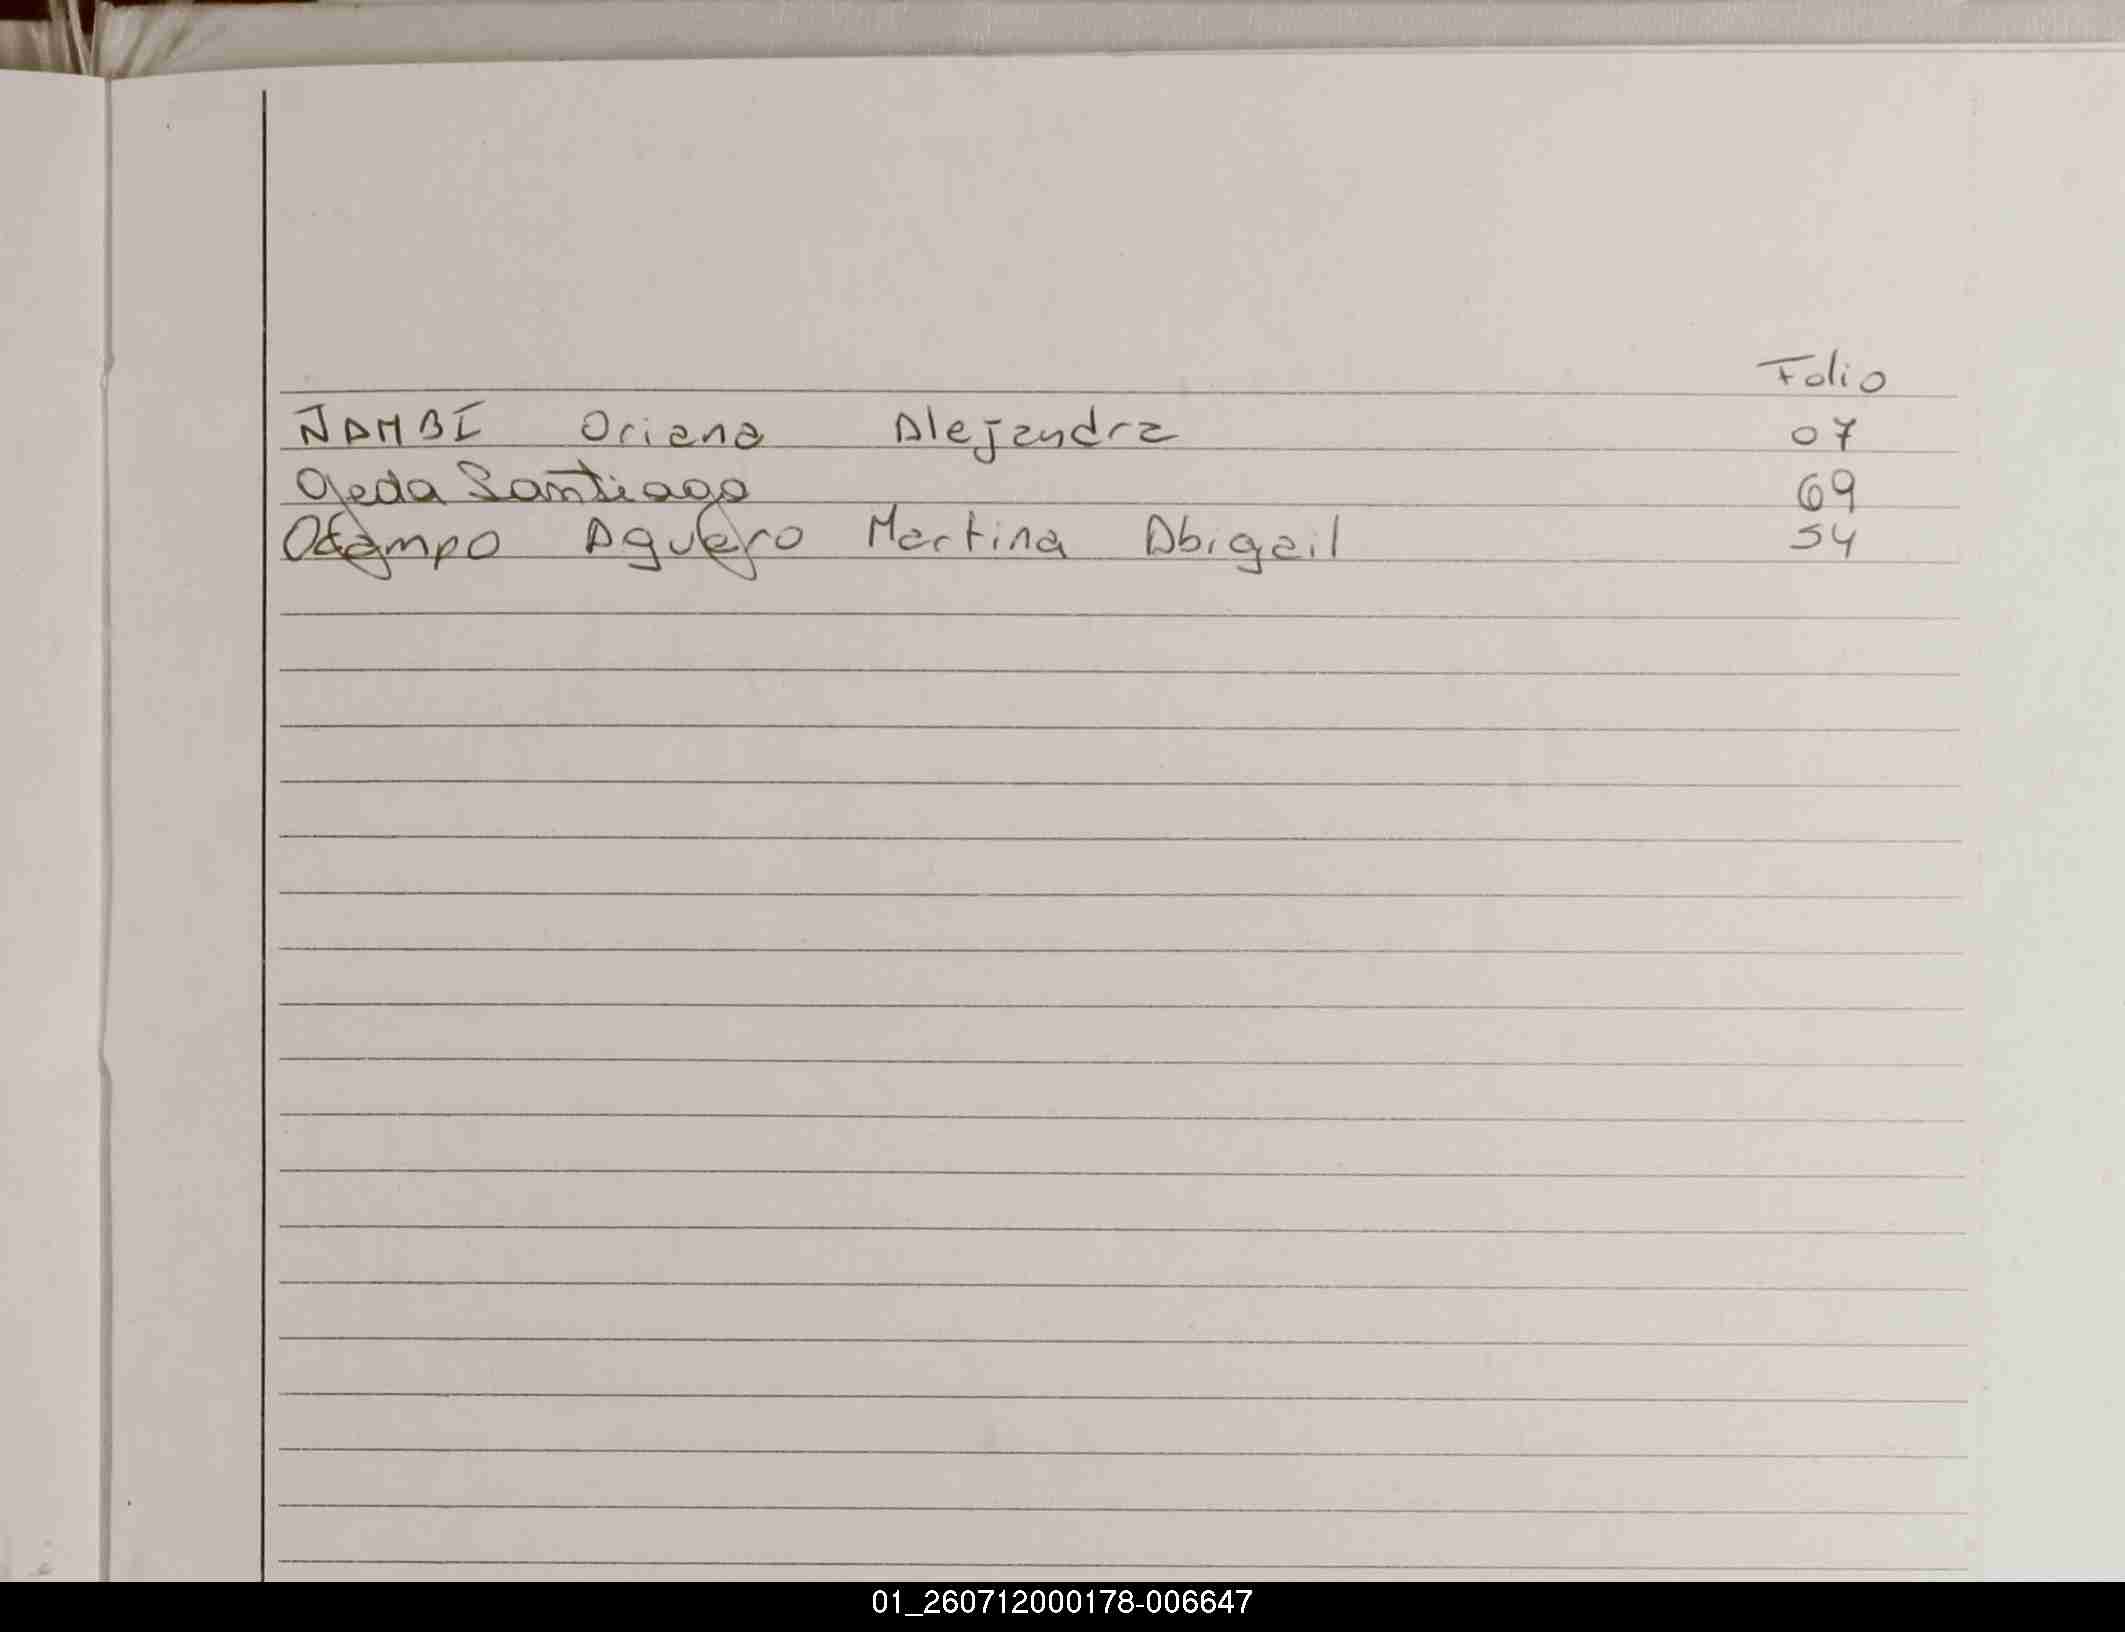 Folio
ÑAMBI Oriana Alejandra 07
Ojeda Santiago 69
Ocampo Aguero Martina Abigail 54
01_260712000178-006647